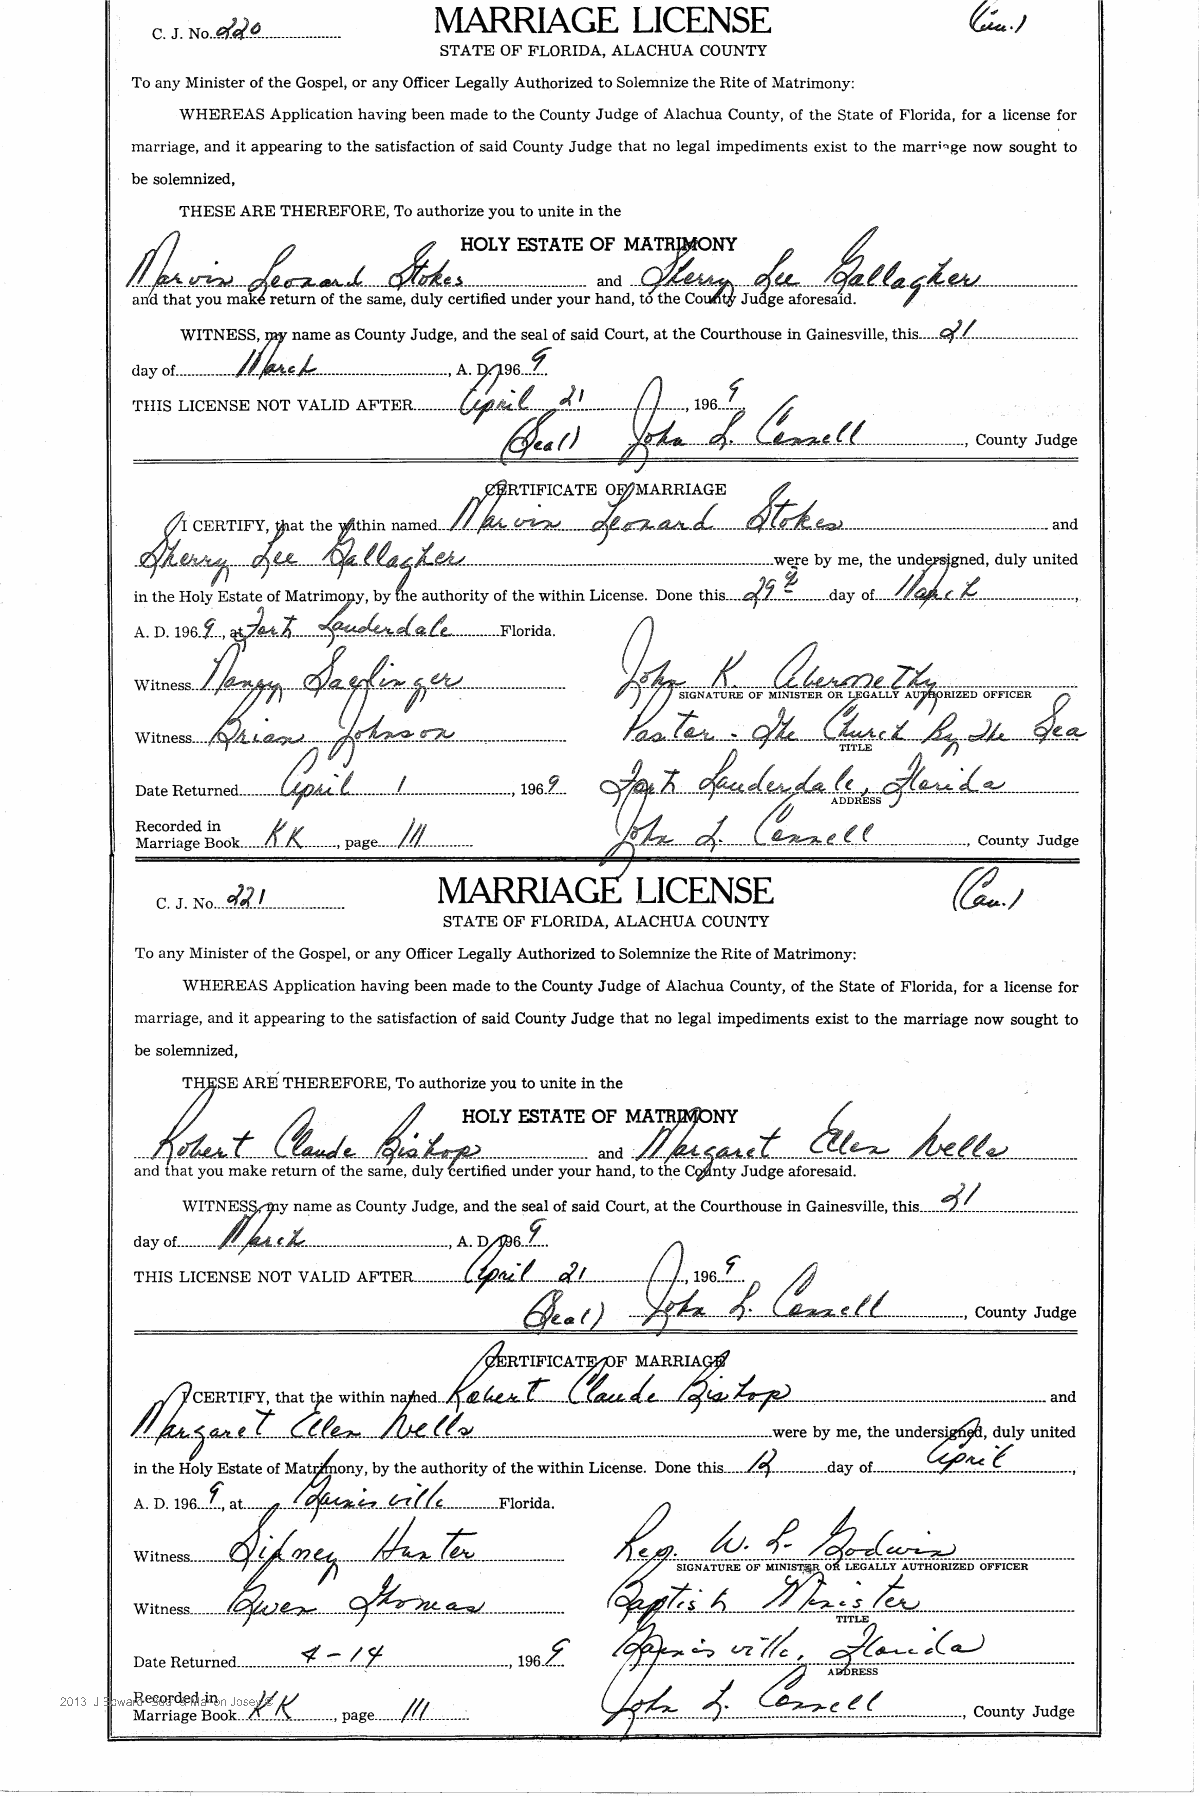 C. J. No. 220
MARRIAGE LICENSE
STATE OF FLORIDA, ALACHUA COUNTY
To any Minister of the Gospel, or any Officer Legally Authorized to Solemnize the Rite of Matrimony:
WHEREAS Application having been made to the County Judge of Alachua County, of the State of Florida, for a license for
marriage, and it appearing to the satisfaction of said County Judge that no legal impediments exist to the marriage now sought to
be solemnized,
THESE ARE THEREFORE, To authorize you to unite in the
HOLY ESTATE OF MATRIMONY
Marvin Leonard Stokes and Sherry Lee Gallagher
and that you make return of the same, duly certified under your hand, to the County Judge aforesaid.
WITNESS, my name as County Judge, and the seal of said Court, at the Courthouse in Gainesville, this 21
day of March, A. D. 1969
THIS LICENSE NOT VALID AFTER April 21, 1969
(Seal) John L. Connell, County Judge
CERTIFICATE OF MARRIAGE
I CERTIFY, that the within named Marvin Leonard Stokes and
Sherry Lee Gallagher were by me, the undersigned, duly united
in the Holy Estate of Matrimony, by the authority of the within License. Done this 29th day of March,
A. D. 1969, at Fort Lauderdale Florida.
Witness Nancy John K. Abernethy
SIGNATURE OF MINISTER OR LEGALLY AUTHORIZED OFFICER
Witness Brian Johnson Pastor - The Church By The Sea
TITLE
Date Returned April 1, 1969 Fort Lauderdale, Florida
ADDRESS
Recorded in
Marriage Book KK, page 111 John L. Connell, County Judge
C. J. No. 221
MARRIAGE LICENSE
(Cau.)
STATE OF FLORIDA, ALACHUA COUNTY
To any Minister of the Gospel, or any Officer Legally Authorized to Solemnize the Rite of Matrimony:
WHEREAS Application having been made to the County Judge of Alachua County, of the State of Florida, for a license for
marriage, and it appearing to the satisfaction of said County Judge that no legal impediments exist to the marriage now sought to
be solemnized,
THESE ARE THEREFORE, To authorize you to unite in the
HOLY ESTATE OF MATRIMONY
Robert Claude Bishop and Margaret Ellen Wells
and that you make return of the same, duly certified under your hand, to the County Judge aforesaid.
WITNESS, my name as County Judge, and the seal of said Court, at the Courthouse in Gainesville, this 21
day of March, A. D. 1969
THIS LICENSE NOT VALID AFTER April 21, 1969
(Seal) John L. Connell, County Judge
CERTIFICATE OF MARRIAGE
I CERTIFY, that the within named Robert Claude Bishop and
Margaret Ellen Wells were by me, the undersigned, duly united
in the Holy Estate of Matrimony, by the authority of the within License. Done this 12 day of April,
A. D. 1969, at Gainesville Florida.
Witness Sidney Hunter W. L. Godwin
SIGNATURE OF MINISTER OR LEGALLY AUTHORIZED OFFICER
Witness Gwen Thomas Baptist Minister
TITLE
Date Returned 4-14, 1969 Gainesville, Florida
ADDRESS
Recorded in
Marriage Book KK, page 111 John L. Connell, County Judge